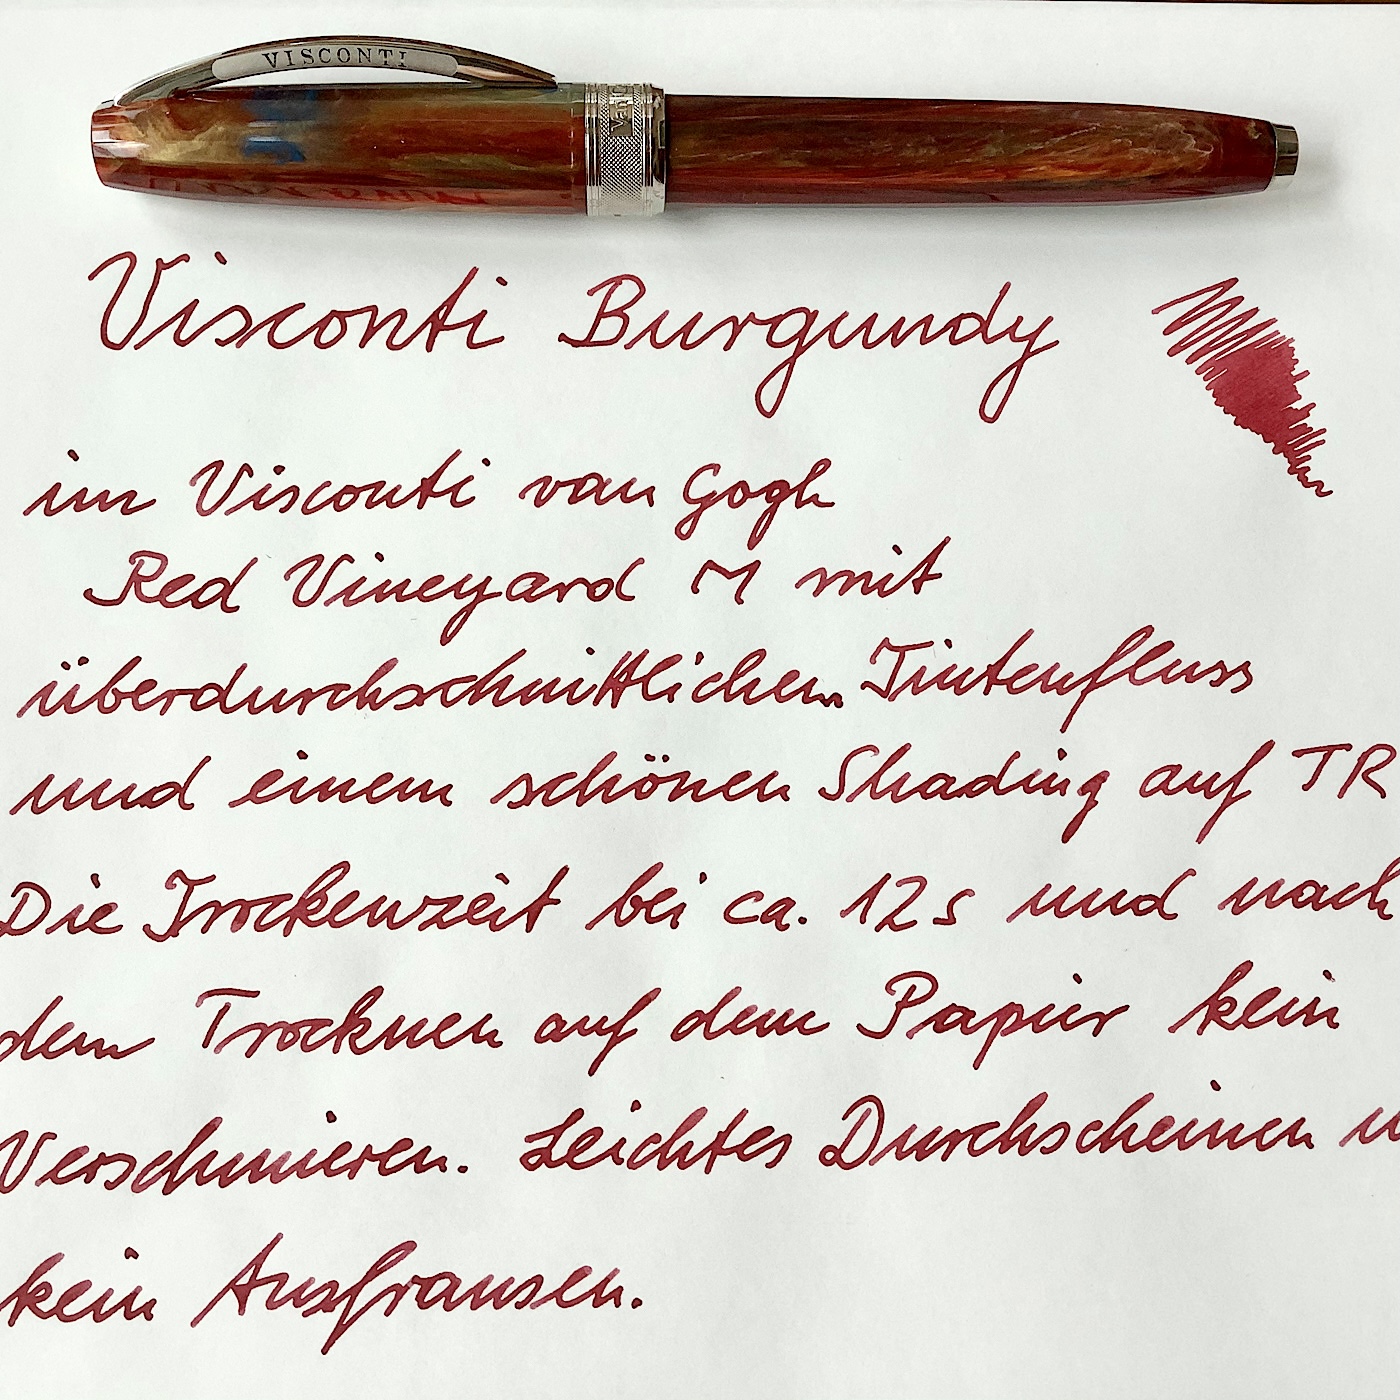 VISCONTI
Van
Visconti Burgundy
im Visconti van Gogh
Red Vineyard M mit
überdurchschnittlichem Tintenfluss
und einem schönen Shading auf TR
Die Trockenzeit bei ca. 12s und nach
dem Trocknen auf dem Papier kein
Verschmieren. Leichtes Durchscheinen
kein Ausfransen.